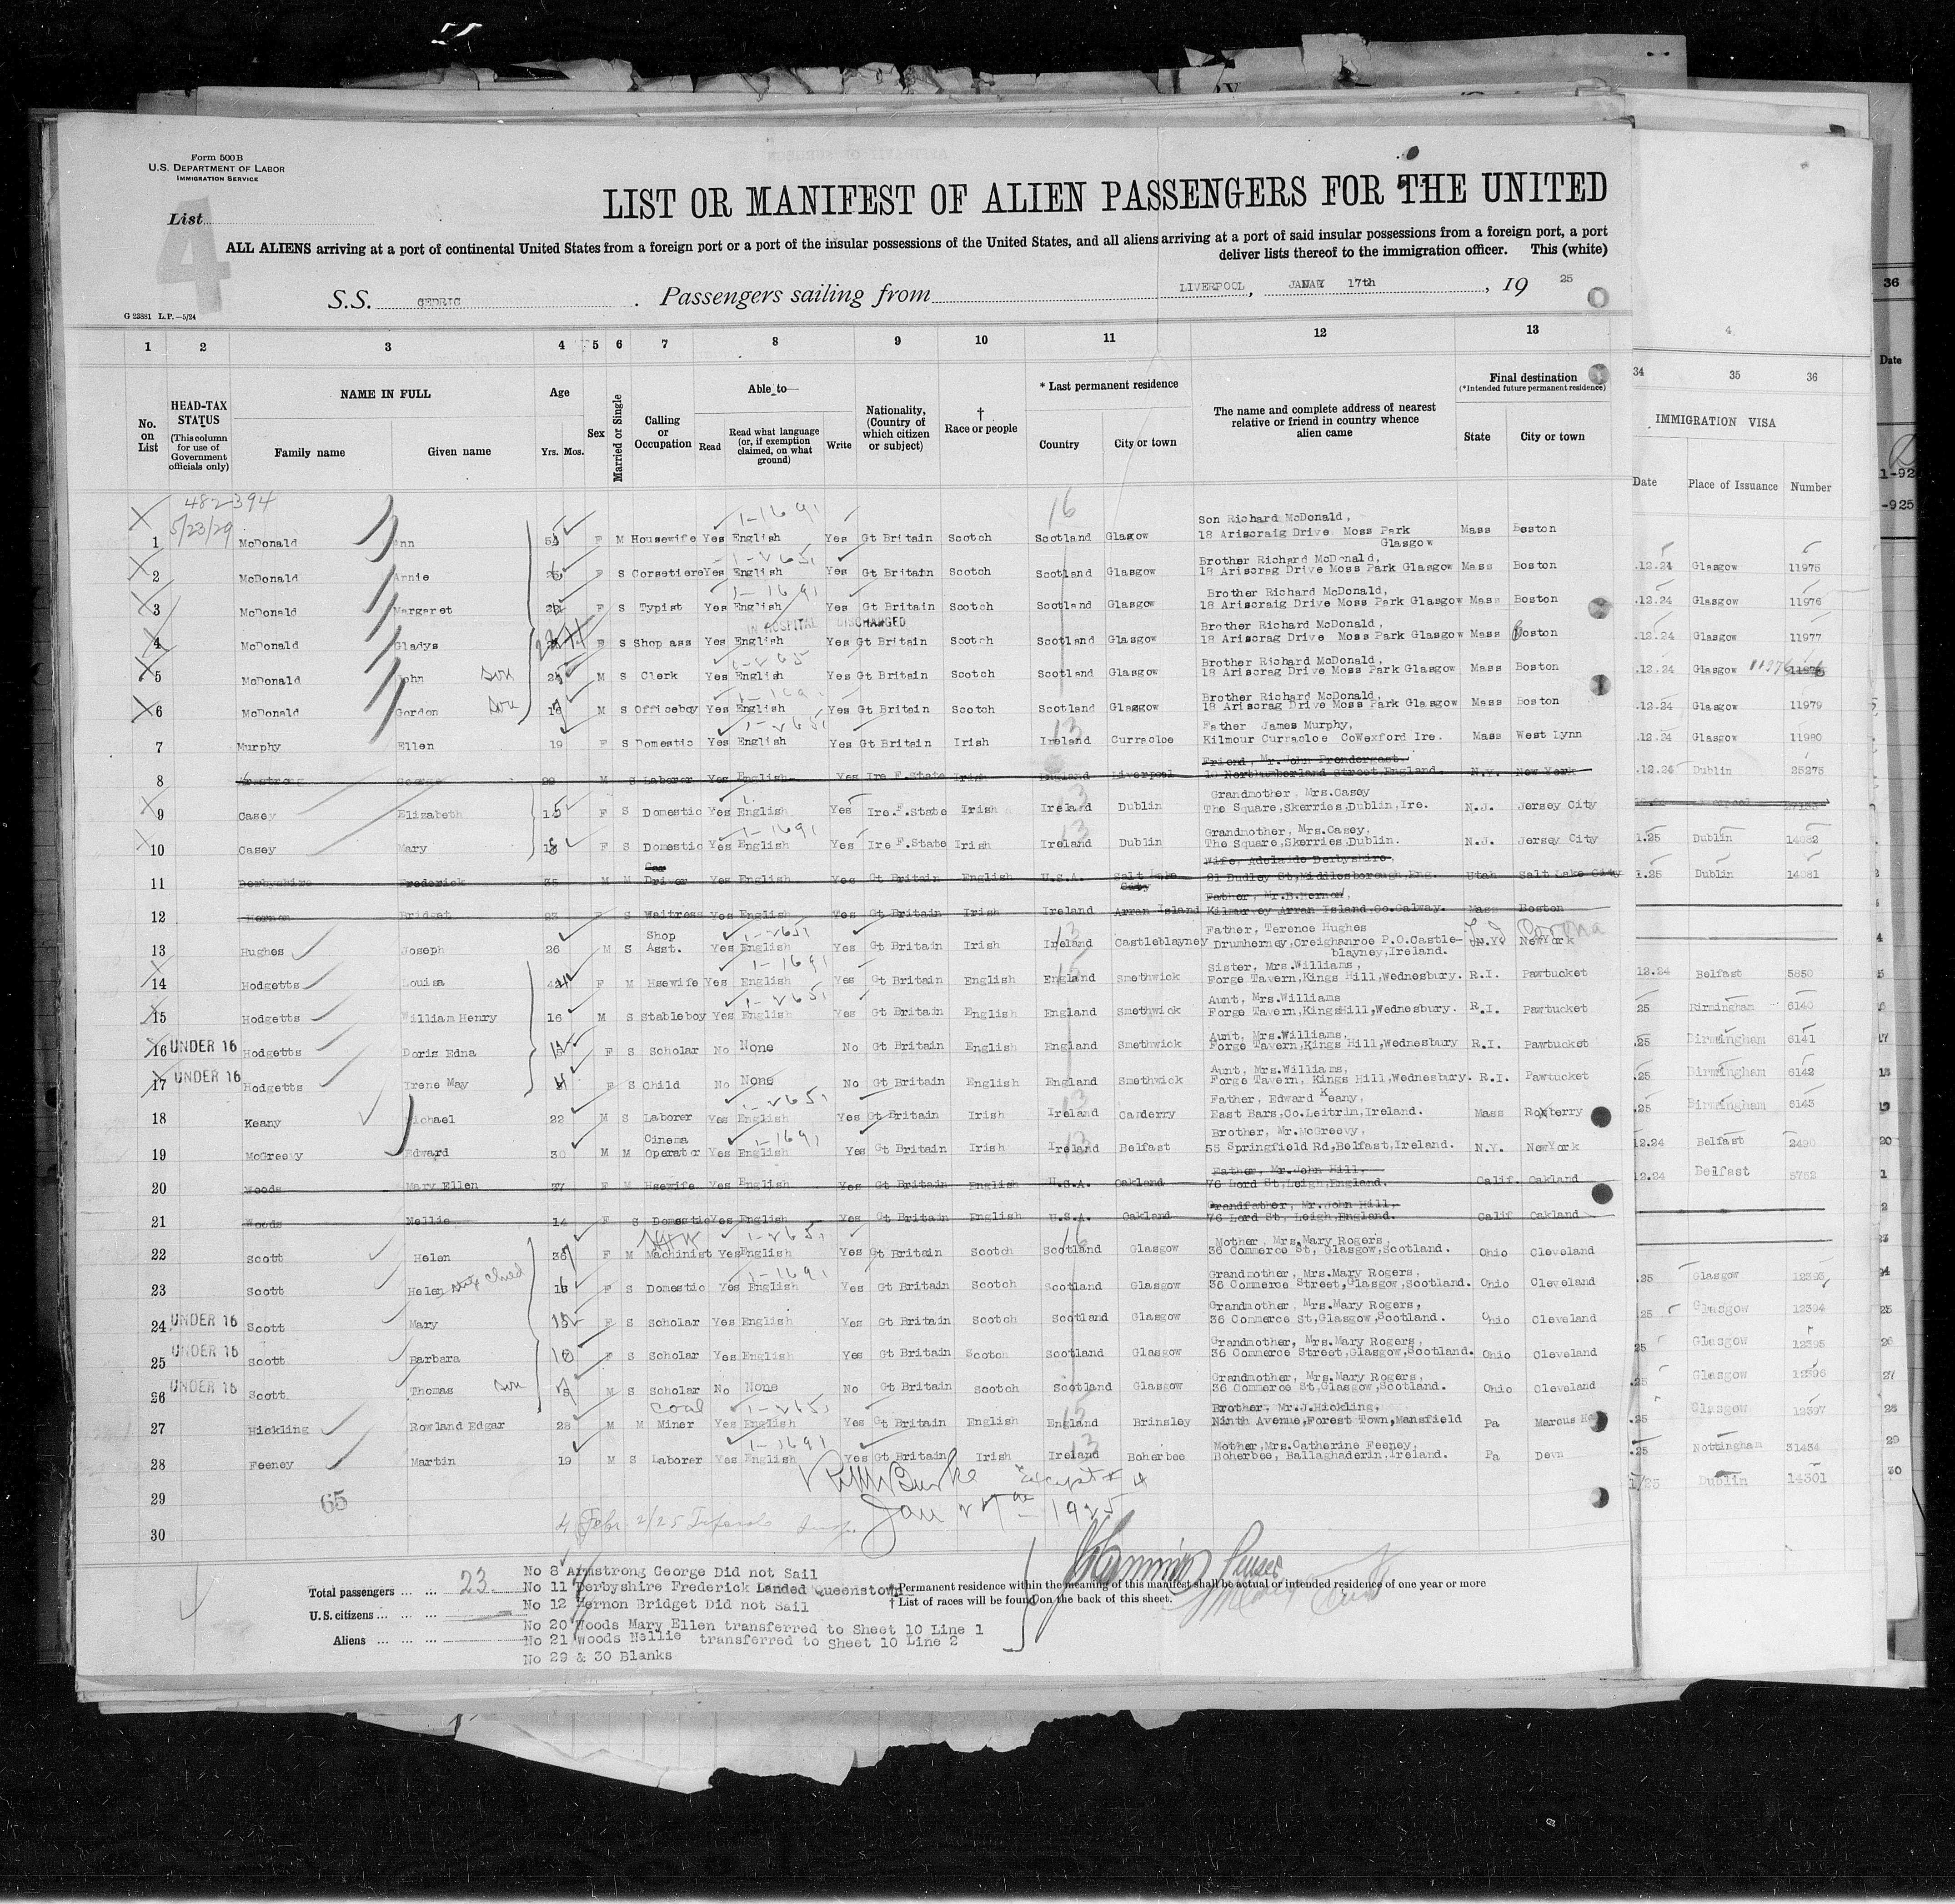 Form 500 B
U.S. DEPARTMENT OF LABOR
IMMIGRATION SERVICE
List
4
LIST OR MANIFEST OF ALIEN PASSENGERS FOR THE UNITED
ALL ALIENS arriving at a port of continental United States from a foreign port or a port of the insular possessions of the United States, and all aliens arriving at a port of said insular possessions from a foreign port, a port
deliver lists thereof to the immigration officer. This (white)
S.S. CEDRIC . Passengers sailing from LIVERPOOL, 17th, 19 25
G 23881 L.P.—5/24
1 2 3 4 5 6 7 8 9 10 11 12 13
34 35 36
No. on List
HEAD-TAX STATUS (This column for use of Government officials only)
NAME IN FULL
Family name Given name
Age Yrs. Mos.
Sex
Married or Single
Calling or Occupation
Able to
Read Read what language (or, if exemption claimed, on what ground) Write
Nationality, (Country of which citizen or subject)
† Race or people
* Last permanent residence
Country City or town
The name and complete address of nearest relative or friend in country whence alien came
Final destination (*Intended future permanent residence)
State City or town
IMMIGRATION VISA
Date Place of Issuance Number
482394
5/23/29
1 McDonald Ann F M Housewife Yes English 1-1691 Yes Gt Britain Scotch Scotland 16 Glasgow Son Richard McDonald, 18 Ariscraig Drive Moss Park Glasgow Mass Boston
2 McDonald Annie F S Corsetiere Yes English 1-2651 Yes Gt Britain Scotch Scotland Glasgow Brother Richard McDonald, 18 Ariscrag Drive Moss Park Glasgow Mass Boston
.12.24 Glasgow 11975
3 McDonald Margaret F S Typist Yes English 1-1691 Yes Gt Britain Scotch Scotland Glasgow Brother Richard McDonald, 18 Ariscraig Drive Moss Park Glasgow Mass Boston
.12.24 Glasgow 11976
IN HOSPITAL DISCHARGED
4 McDonald Gladys F S Shop ass Yes English Yes Gt Britain Scotch Scotland Glasgow Brother Richard McDonald, 18 Ariscrag Drive Moss Park Glasgow Mass Boston
.12.24 Glasgow 11977
5 McDonald John son M S Clerk Yes English Yes Gt Britain Scotch Scotland Glasgow Brother Richard McDonald, 18 Ariscrag Drive Moss Park Glasgow Mass Boston
.12.24 Glasgow
6 McDonald Gordon son M S Officeboy Yes English 1-1691 Yes Gt Britain Scotch Scotland Glasgow Brother Richard McDonald, 18 Ariscrag Drive Moss Park Glasgow Mass Boston
.12.24 Glasgow 11979
7 Murphy Ellen 19 F S Domestic Yes English 1-2651 Yes Gt Britain Irish Ireland 13 Curracloe Father James Murphy, Kilmour Curracloe CoWexford Ire. Mass West Lynn
.12.24 Glasgow 11980
8 Armstrong George M S Laborer Yes English Yes Ire F.State Irish England Liverpool Friend, Mr.John Prendergast. Northumberland Street,England. N.Y. New York
.12.24 Dublin 25275
9 Casey Elizabeth F S Domestic Yes English Yes Ire.F.State Irish Ireland 13 Dublin Grandmother, Mrs.Casey The Square,Skerries,Dublin,Ire. N.J. Jersey City
10 Casey Mary 18 F S Domestic Yes English 1-1691 Yes Ire F.State Irish Ireland 13 Dublin Grandmother, Mrs.Casey, The Square,Skerries,Dublin. N.J. Jersey City
1.25 Dublin 14082
11 Derbyshire Frederick 35 M M Car Driver Yes English Yes Gt Britain English U.S.A. Salt Lake City Wife, Adelaide Derbyshire. 21 Dudley St,Middlesborough,Eng. Utah Salt Lake City
1.25 Dublin 14081
12 Hernon Bridget 23 F S Waitress Yes English Yes Gt Britain Irish Ireland Arran Island Father, Mr.B.Hernon, Kilmurvey Arran Island,Co.Galway. Mass Boston
13 Hughes Joseph 26 M S Shop Asst. Yes English 1-2651 Yes Gt Britain Irish Ireland 13 Castleblayney Father, Terence Hughes Drumherney,Creighanroe P.O.Castle-blayney,Ireland. N.Y. NewYork Corona
14 Hodgetts Louisa F M Hsewife Yes English 1-1691 Yes Gt Britain English England 15 Smethwick Sister, Mrs.Williams, Forge Tavern,Kings Hill,Wednesbury. R.I. Pawtucket
12.24 Belfast 5850
15 Hodgetts William Henry 16 M S Stableboy Yes English 1-2651 Yes Gt Britain English England Smethwick Aunt, Mrs.Williams Forge Tavern,KingsHill,Wednesbury. R.I. Pawtucket
25 Birmingham 6140
16 UNDER 16 Hodgetts Doris Edna F S Scholar No None No Gt Britain English England Smethwick Aunt, Mrs.Williams, Forge Tavern,Kings Hill,Wednesbury R.I. Pawtucket
.25 Birmingham 6141
17 UNDER 16 Hodgetts Irene May F S Child No None No Gt Britain English England Smethwick Aunt, Mrs.Williams, Forge Tavern, Kings Hill,Wednesbury. R.I. Pawtucket
.25 Birmingham 6142
18 Keany Michael 22 M S Laborer Yes English 1-2651 Yes Gt Britain Irish Ireland 13 Canderry Father, Edward Keany, East Bars,Co.Leitrim,Ireland. Mass Roxberry
.25 Birmingham 6143
19 McGreevy Edward 30 M M Cinema Operator Yes English 1-1691 Yes Gt Britain Irish Ireland 13 Belfast Brother, Mr.McGreevy, 55 Springfield Rd,Belfast,Ireland. N.Y. NewYork
12.24 Belfast 2490
20 Woods Mary Ellen 37 F M Hsewife Yes English Yes Gt Britain English U.S.A. Oakland Father, Mr.John Hill, 76 Lord St,Leigh,England. Calif. Oakland
12.24 Belfast 5762
21 Woods Nellie 14 F S Domestic Yes English Yes Gt Britain English U.S.A. Oakland Grandfather, Mr.John Hill, 76 Lord St, Leigh,England. Calif Oakland
22 Scott Helen F M Machinist Yes English 1-2651 Yes Gt Britain Scotch Scotland 16 Glasgow Mother, Mrs.Mary Rogers, 36 Commerce St, Glasgow,Scotland. Ohio Cleveland
23 Scott Helen step child 16 F S Domestic Yes English 1-1691 Yes Gt Britain Scotch Scotland Glasgow Grandmother, Mrs.Mary Rogers, 36 Commerce Street,Glasgow,Scotland. Ohio Cleveland
.25 Glasgow 12393
24 UNDER 16 Scott Mary F S Scholar Yes English Yes Gt Britain Scotch Scotland Glasgow Grandmother, Mrs.Mary Rogers, 36 Commerce St,Glasgow,Scotland. Ohio Cleveland
.25 Glasgow 12394
25 UNDER 16 Scott Barbara 10 F S Scholar Yes English Yes Gt Britain Scotch Scotland Glasgow Grandmother, Mrs.Mary Rogers, 36 Commerce Street,Glasgow,Scotland. Ohio Cleveland
25 Glasgow 12395
26 UNDER 16 Scott Thomas son M S Scholar No None No Gt Britain Scotch Scotland Glasgow Grandmother, Mrs.Mary Rogers, 36 Commerce St,Glasgow,Scotland. Ohio Cleveland
.25 Glasgow 12396
27 Hickling Rowland Edgar 28 M M Coal Miner Yes English 1-2651 Yes Gt Britain English England 15 Brinsley Brother, Mr.J.Hickling, Ninth Avenue,Forest Town,Mansfield Pa Marcus
.25 Glasgow 12397
28 Feeney Martin 19 M S Laborer Yes English 1-1691 Yes Gt Britain Irish Ireland 13 Boherbee Mother,Mrs.Catherine Feeney, Boherbee, Ballaghaderin,Ireland. Pa Devn
.25 Nottingham 31434
29
1/25 Dublin 14301
65
30
Burke except # 4
Jan 27th - 1925
4 Febr. 2/25
Total passengers ... ... 23
U.S. citizens ... ... ...
Aliens ... ... ...
No 8 Armstrong George Did not Sail
No 11 Derbyshire Frederick Landed Queenstown
No 12 Hernon Bridget Did not Sail
No 20 Woods Mary Ellen transferred to Sheet 10 Line 1
No 21 Woods Nellie transferred to Sheet 10 Line 2
No 29 & 30 Blanks
* Permanent residence within the meaning of this manifest shall be actual or intended residence of one year or more
† List of races will be found on the back of this sheet.
Purser
36
Date